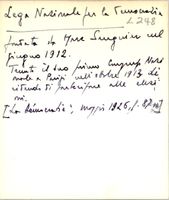 Lega Nazionale per la Democrazia
L 248
fondata da Marc Sangnier nel
giugno 1912.
Tenne il suo primo Congresso Nazio
nale a Parigi nell'ottobre 1913 de
cidendo di partecipare alle elezio
ni.
[La démocratie, maggio 1926, p.